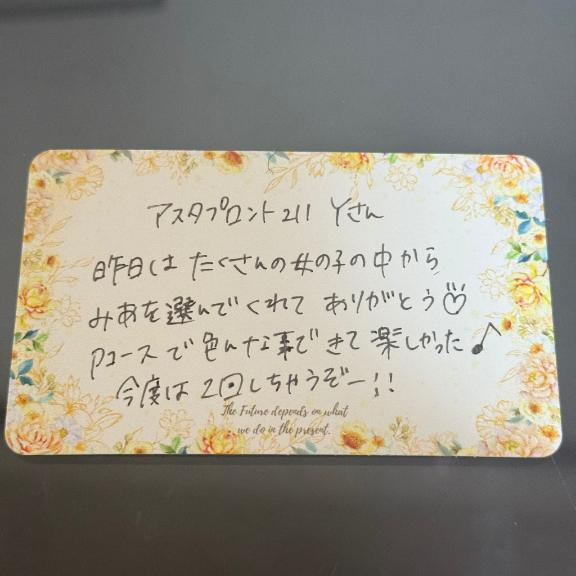 アスタプロント211 Yさん
昨日は たくさんの女の子の中から
みあを選んでくれて ありがとう♡
Pコースで色んな事できて楽しかった♪
今度は2回しちゃうぞー!!
The Future depends on what
we do in the present.